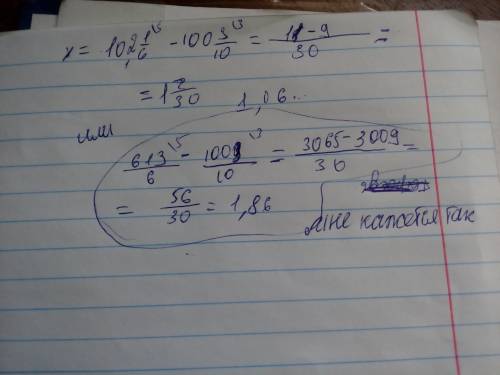 x = 102 1/6 ⁵ − 100 3/10 ³ = 11 − 9 / 30 =
= 1 2/30 1,06...
или
613/6 ⁵ − 1003/10 ³ = 3065 − 3009 / 30 =
= 56/30 = 1,86
мне кажется так